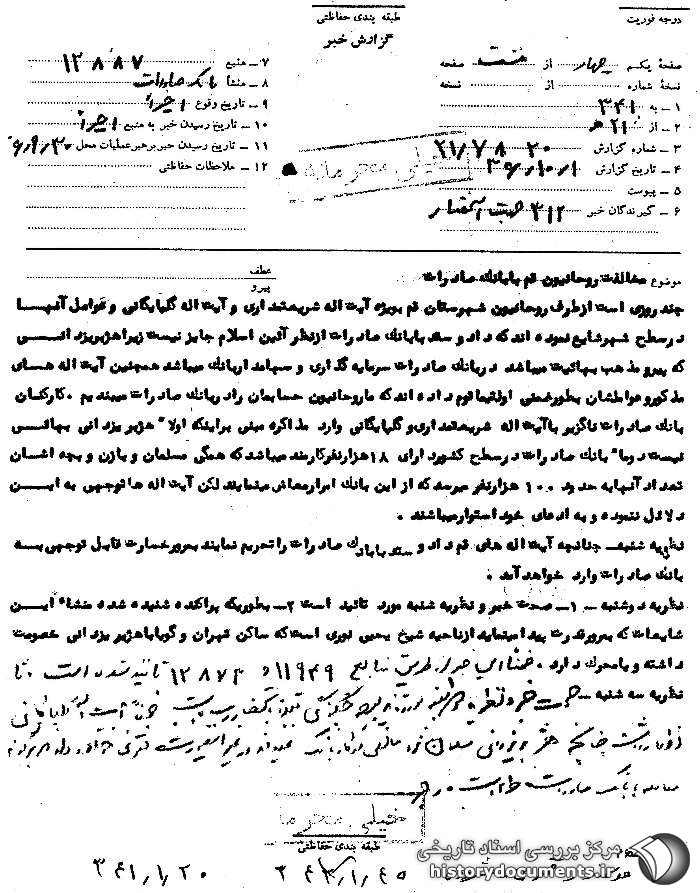 درجه فوریت
طبقه بندی حفاظتی
گزارش خبر
صفحه یکم چهار از صفحه
نسخه شماره از نسخه
۱ - به ۳۴۱
۲ - از ۲۱ هـ
۳ - شماره گزارش ۲۰ ۲۱/۷۸
۴ - تاریخ گزارش ۳۶/۱۰/۱
۵ - پیوست
۶ - گیرندگان خبر ۳۱۲ جهت استحضار
۷ - منبع ۱۲۸۸۷
۸ - منشأ بانک صادرات
۹ - تاریخ وقوع اخیراً
۱۰ - تاریخ رسیدن خبر به منبع اخیراً
۱۱ - تاریخ رسیدن خبر برهبر عملیات محل ۳۶/۹/۳۰
۱۲ - ملاحظات حفاظتی
خیلی محرمانه
موضوع مخالفت روحانیون قم با بانک صادرات
عطف
پیرو
چند روزی است از طرف روحانیون شهرستان قم بویژه آیت اله شریعتمداری و آیت اله گلپایگانی و عوامل آنها
در سطح شهر شایع نموده اند که داد و ستد با بانک صادرات از نظر آئین اسلام جایز نیست زیرا هژبر یزدانی
که پیرو مذهب بهائیت میباشد در بانک صادرات سرمایه گذاری و سهامدار بانک میباشد همچنین آیت اله های
مذکور و عواملشان بطور ضمنی اولتیماتوم داده اند که ما روحانیون حسابمان را در بانک صادرات میبندیم . کارکنان
بانک صادرات ناگزیر با آیت اله شریعتمداری و گلپایگانی وارد مذاکره مبنی براینکه اولا" هژبر یزدانی بهائی
نیست دوما" بانک صادرات در سطح کشور دارای ۱۸ هزار نفر کارمند میباشد که همگی مسلمان و با زن و بچه اشان
تعداد آنها به حدود ۱۰۰ هزار نفر میرسد که از این بانک امرار معاش مینمایند لکن آیت اله ها توجهی به این
دلائل ننموده و به ادعای خود استوار میباشند .
نظریه شنبه - چنانچه آیت اله های قم داد و ستد با بانک صادرات را تحریم نمایند بمرور خسارت قابل توجهی به
بانک صادرات وارد خواهد آمد .
نظریه دوشنبه - ۱- صحت خبر و نظریه شنبه مورد تائید است ۲- بطوریکه پراکنده شنیده شده منشاء این
شایعات که بمرور قدرت پیدا مینماید از ناحیه شیخ یحیی نوری است که ساکن تهران و گویا با هژبر یزدانی خصومت
داشته و یا محرک دارد . ضمناً این خبر از طریق منابع ۱۱۹۴۹ و ۱۲۸۷۳ تائید شده است
نظریه سه شنبه - صحت خبر و نظریه
معامله با بانک صادرات
خیلی محرمانه
طبقه بندی حفاظتی
۳۴۱/۱/۲۰
مرکز بررسی اسناد تاریخی
historydocuments.ir